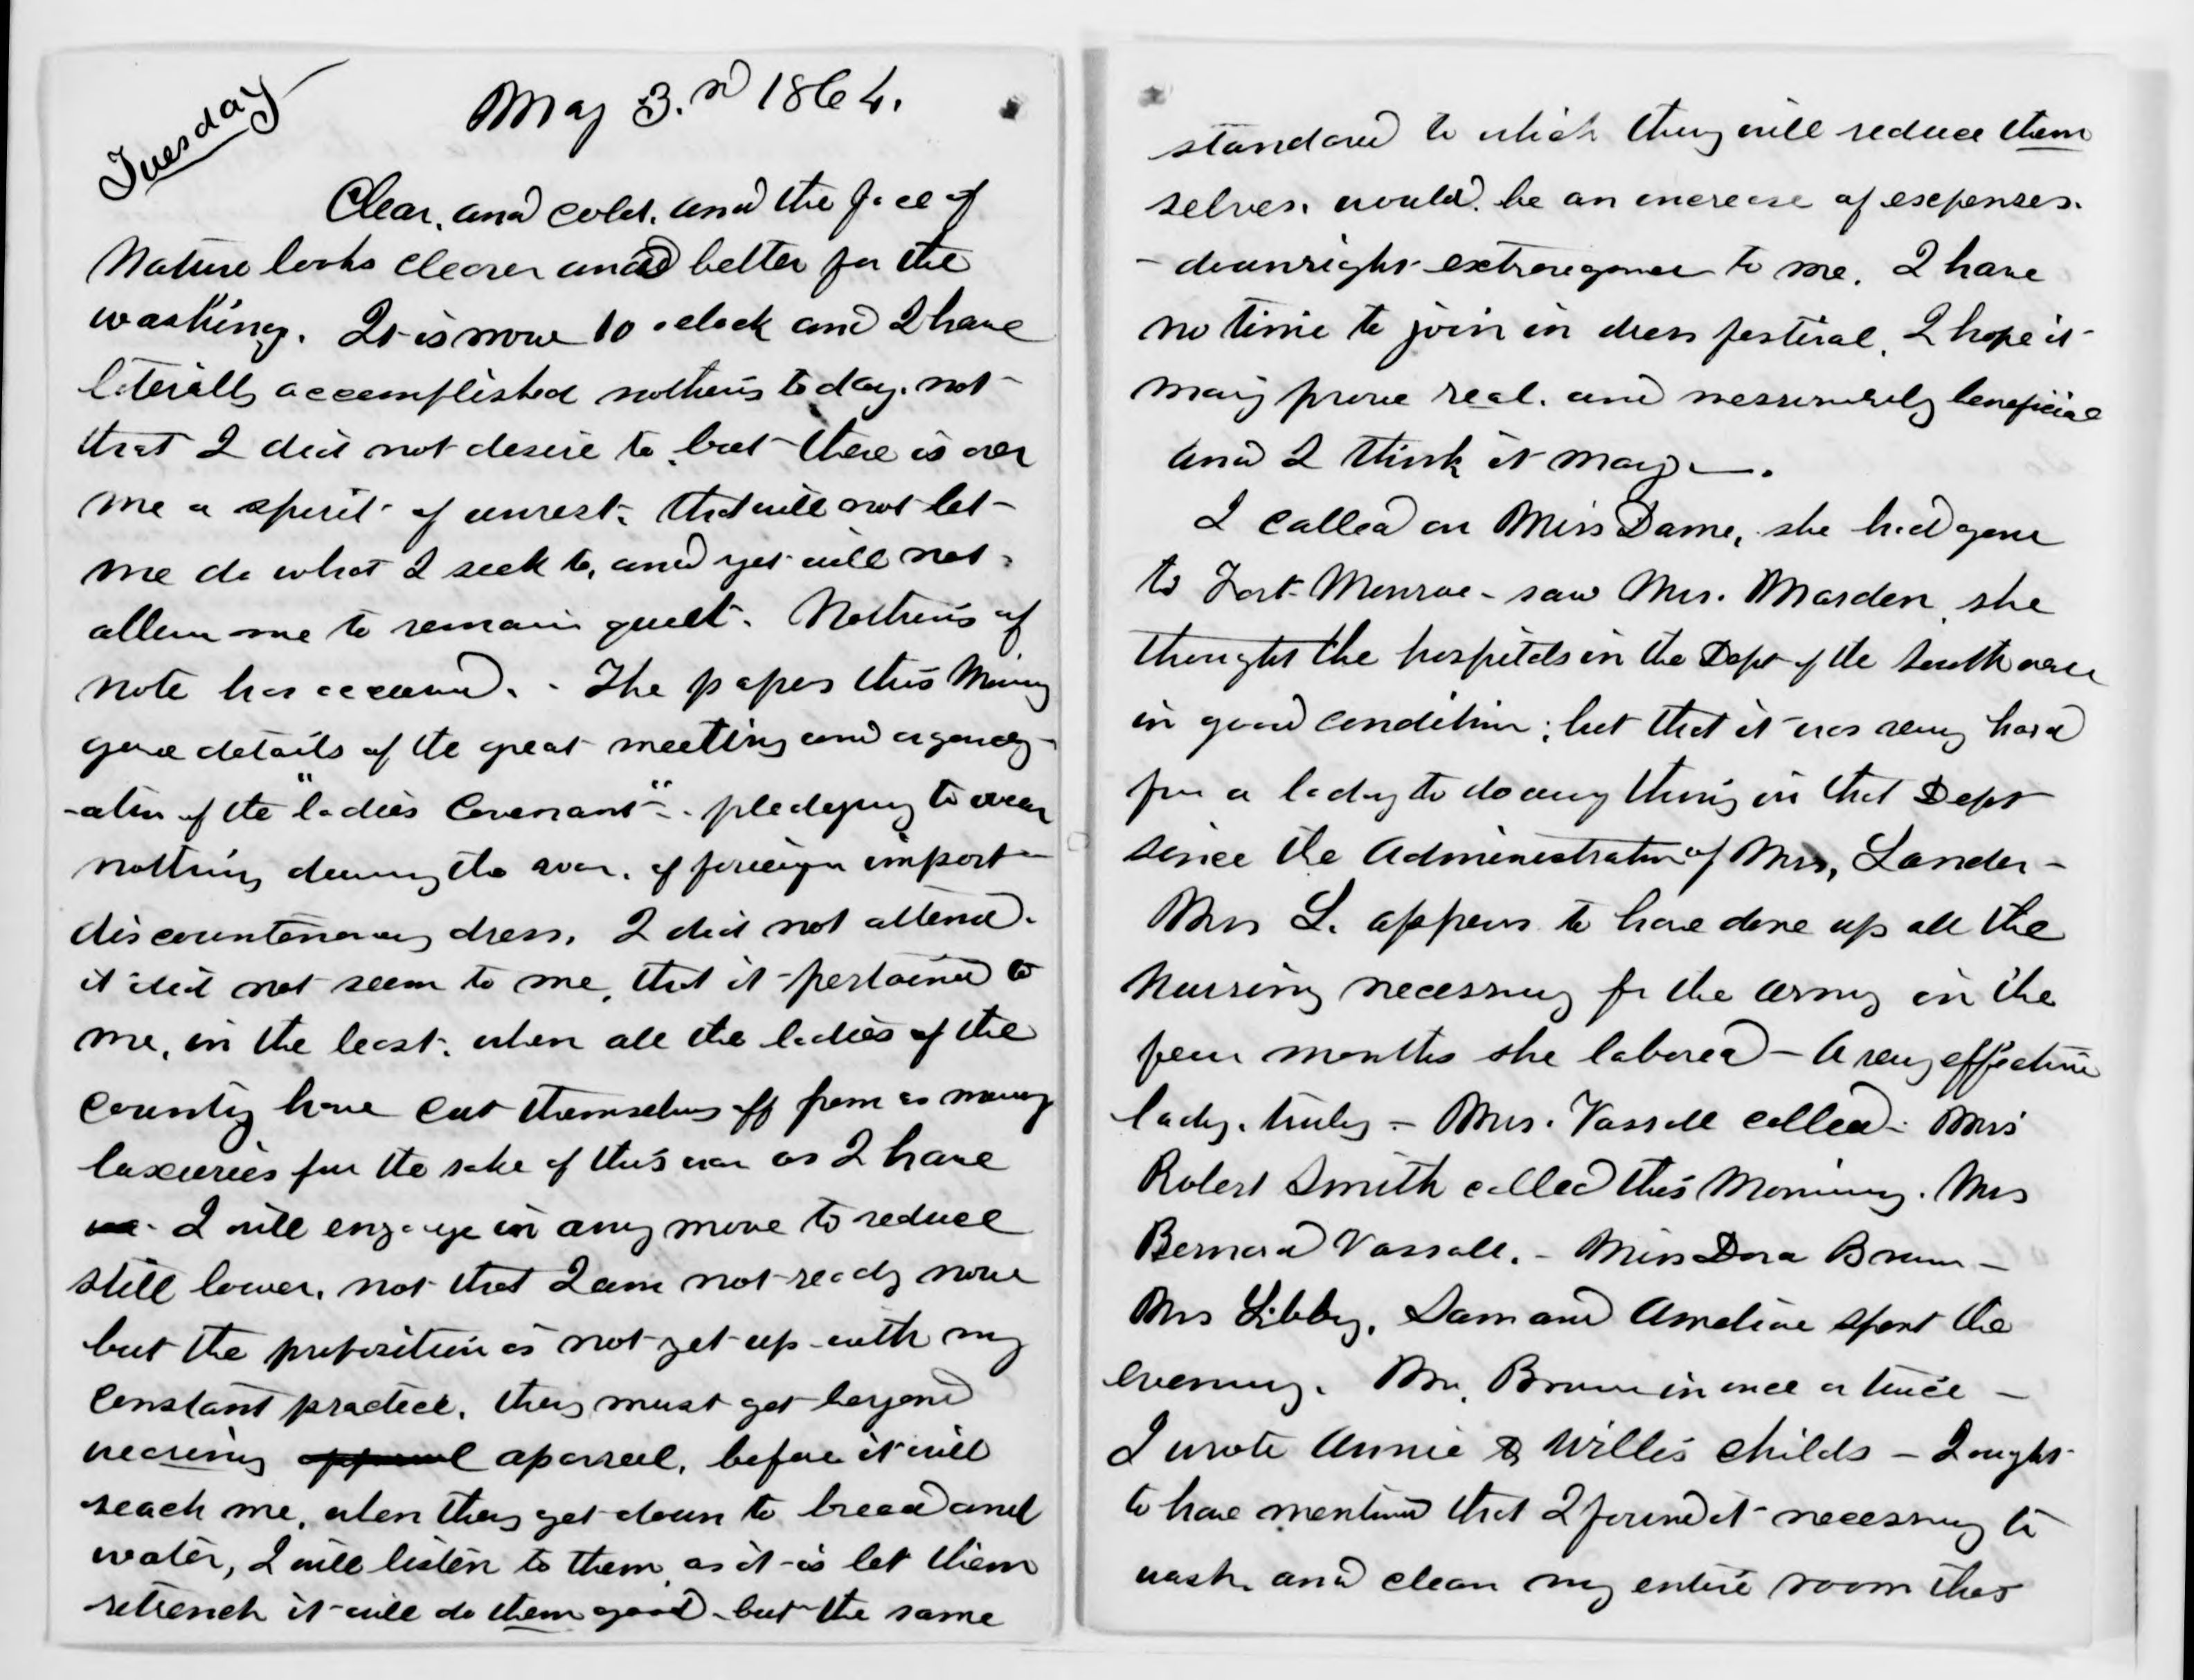 Tuesday
May 3.rd 1864.
Clear, and cold. and the face of
Nature looks clearer and better for the
washing. It is now 10 oclock and I have
literally accomplished nothing today. not
that I did not desire to, but there is over
me a spirit of unrest. that will not let
me do what I seek to, and yet will not
allow me to remain quiet. Nothing of
note has occurred. - The papers this Morning
gave details of the great meeting and
-ation of the "ladies Covenant" - pledging to wear
nothing during the war. of foreign import
discountenancing dress. I did not attend.
it did not seem to me, that it pertained to
me, in the least. when all the ladies of the
country have cut themselves off from as many
luxuries for the sake of this war as I have
I will engage in any move to reduce
still lower. not that I am not ready now
but the proposition is not yet up with my
constant practice. they must get beyond
wearing apparel aparrel, before it will
reach me, when they get down to bread and
water, I will listen to them, as it is let them
retrench it will do them good - but the same
standard to which they will reduce them
selves. would. be an increase of expenses.
- downright extravagance to me. I have
no time to join in dress festival. I hope it
may prove real. and necessarily beneficial
and I think it may -.
I called on Miss Dame, she had gone
to Fort Monroe - saw Mrs. Marden, she
thought the hospitals in the Dept of the South were
in good condition; but that it was very hard
for a lady to do any thing in that Dept
since the Administration of Mrs, Lander -
Mrs L. appears to have done up all the
Nursing necessary for the army in the
few months she labored - A very effective
lady. truly - Mrs. Vassall called. Mrs
Robert Smith called this Morning. Mrs
Bernard Vassall. - Miss Dora Brown -
Mrs Libby, Sam and Amelia spent the
evening. Mr. Brown in once or twice -
I wrote Annie & Willis childs - I ought
to have mentioned that I found it necessary to
wash and clean my entire room this